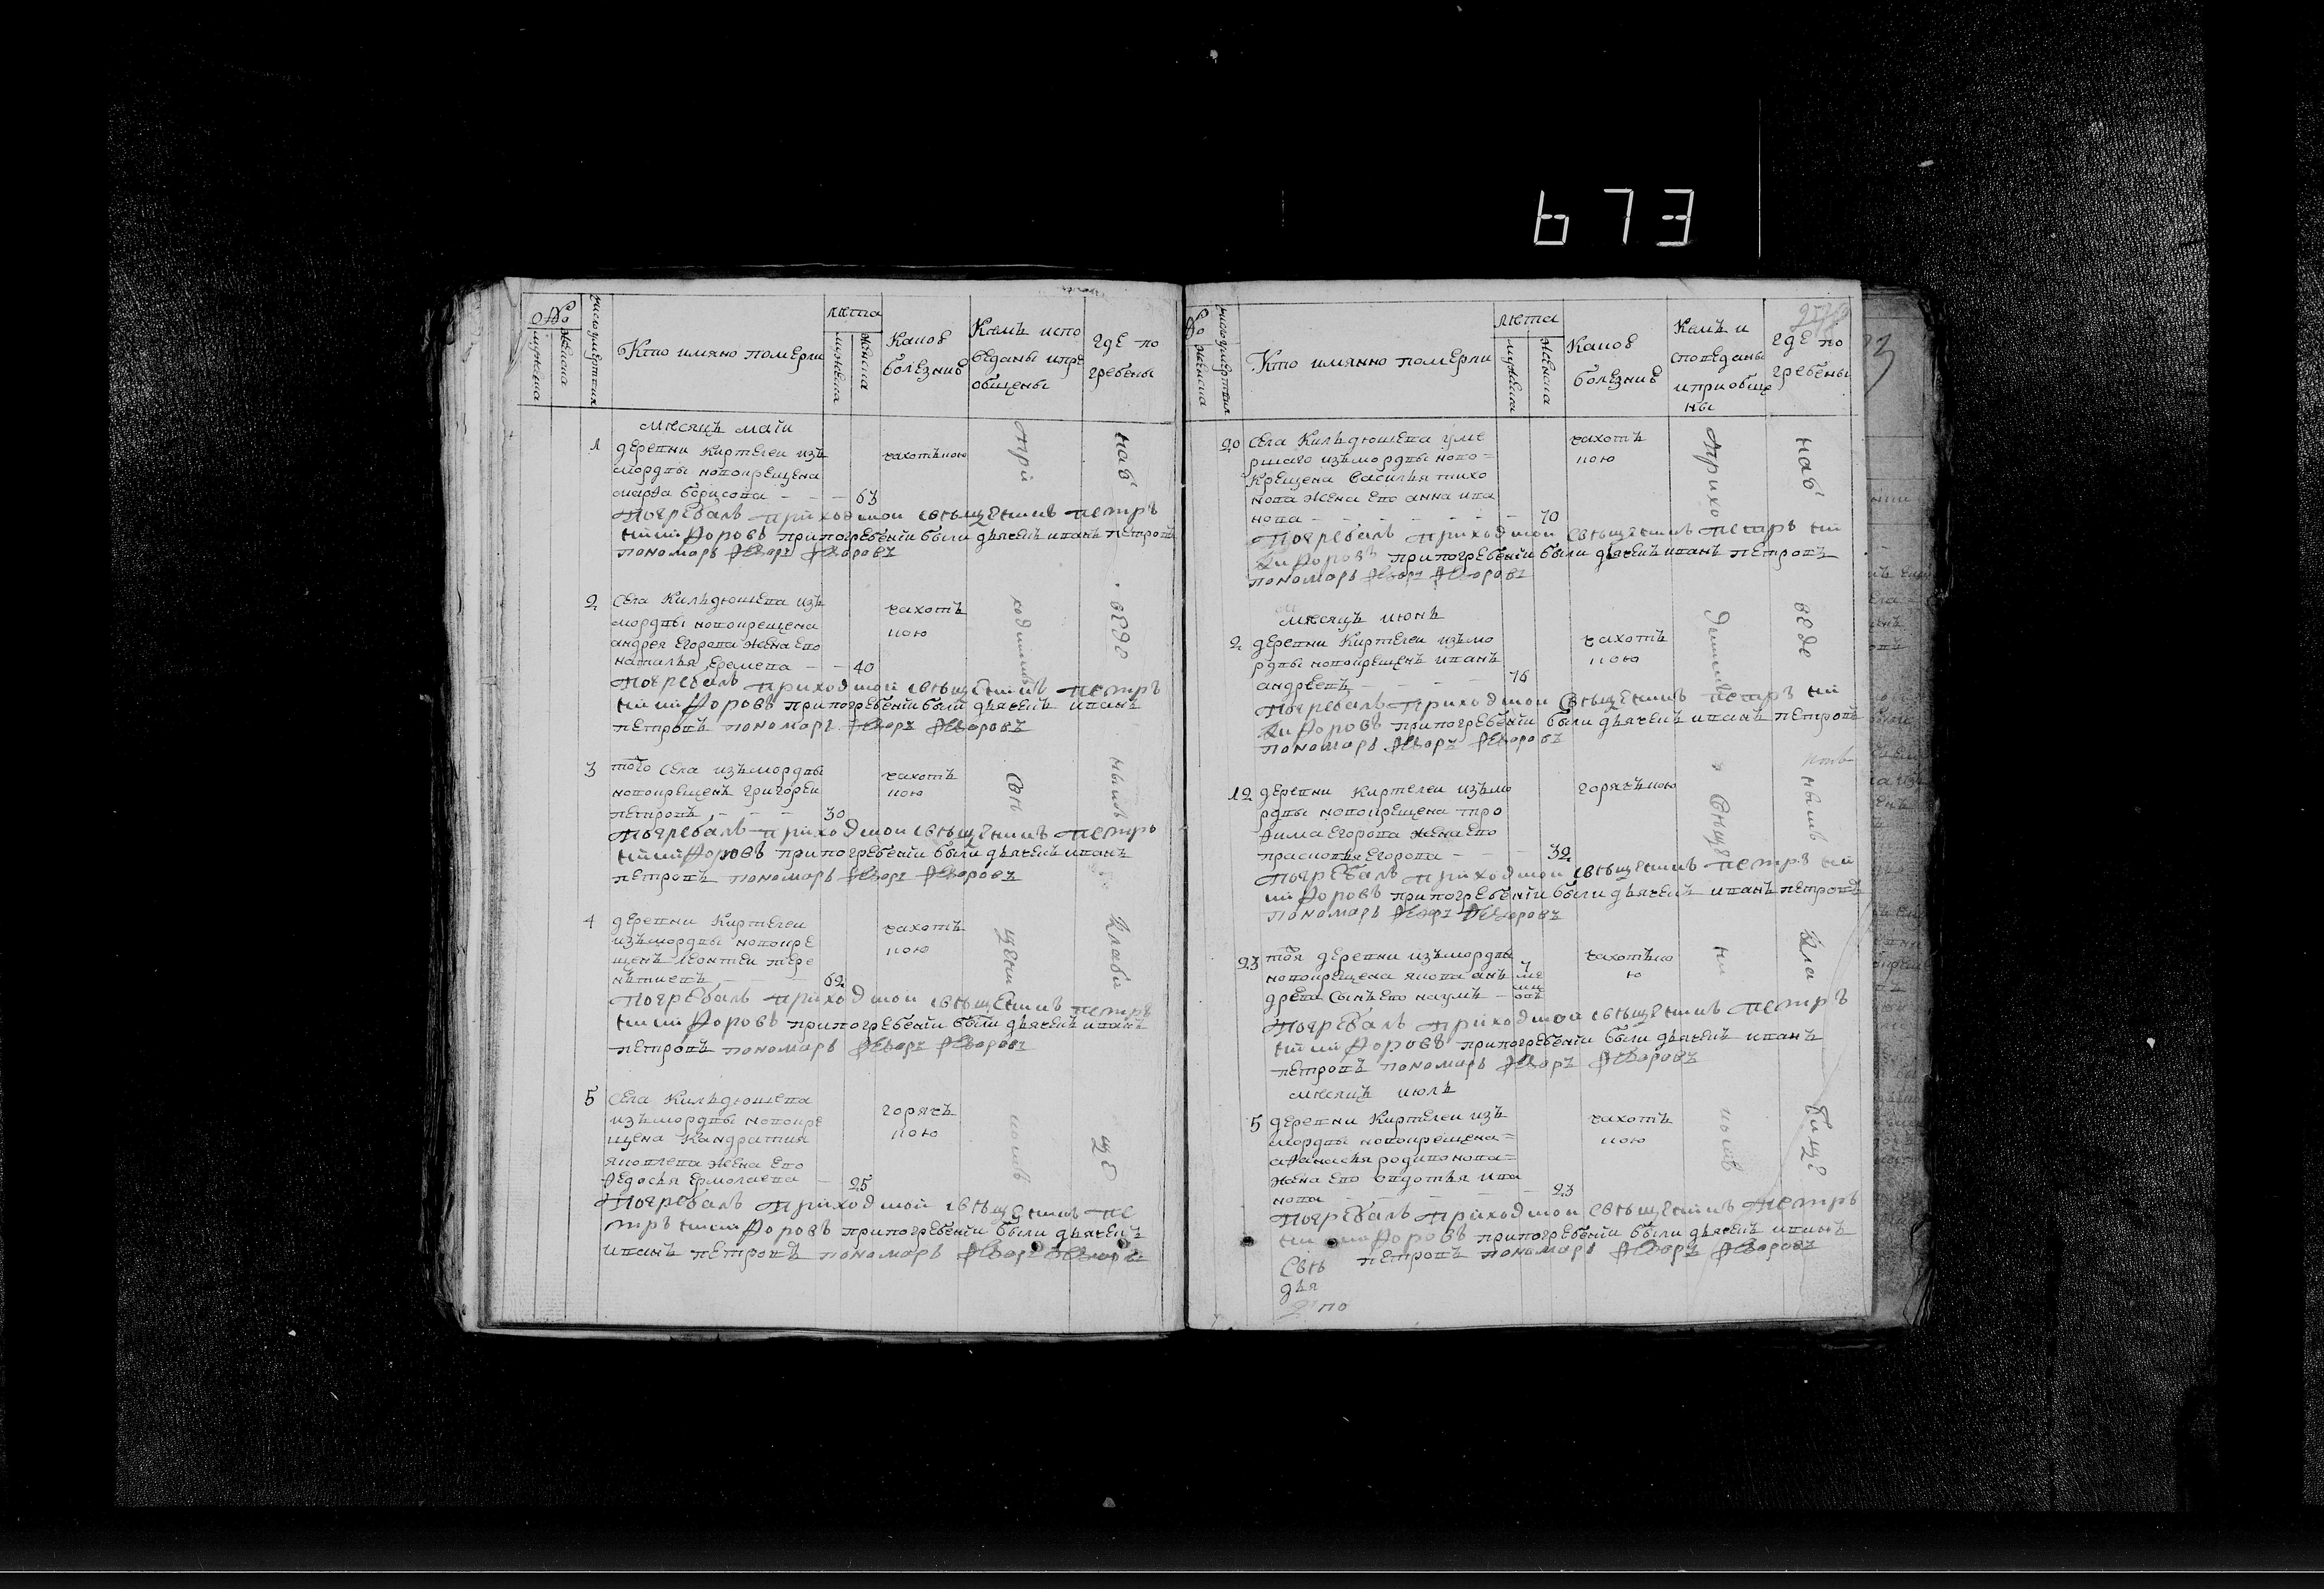 673
№
мужеска
женска
число умертвия
Кто имяно померли
лѣта
мужеска
женска
Какою
болезнию
Кемъ испо
веданы и пре
общены
где по
гребены
месяцъ маий
1 деревни Киртелеи изъ
мордвы новокрещена
марѳа борисова – – – 63
чахоткою
Погребалъ приходской священникъ петръ
никифоровъ при погребении были дьячекъ иванъ петровъ
пономарь ѳедоръ ѳедоровъ
2 села Кильдюшева изъ
мордвы новокрещена
андрея Егорова жена Его
наталья Еремева – – 40
чахот
кою
Погребалъ приходской священникъ петръ
никифоровъ при погребении были дьячекъ иванъ
петровъ пономарь ѳедоръ ѳедоровъ
3 того села изъ мордвы
новокрещенъ григореи
петровъ – – – 30
чахот
кою
Погребалъ приходской священникъ петръ
никифоровъ при погребении были дьячекъ иванъ
петровъ пономарь ѳедоръ ѳедоровъ
4 деревни Киртелеи
изъ мордвы новокре
щенъ леонтеи тере
нтиевъ – – 62
чахот
кою
Погребалъ приходской священникъ петръ
никифоровъ при погребении были дьячекъ иванъ
петровъ пономарь ѳедоръ ѳедоровъ
5 села Кильдюшева
изъ мордвы новокре
щена Кандратия
яковлева жена Его
ѳедосья Ермолаева – 25
горяч
кою
Погребалъ приходской священникъ пе
тръ никифоровъ при погребении были дьячекъ
иванъ петровъ пономарь ѳедоръ ѳедоровъ
При
ходским
свя
щени
комъ
На об
веде
нномъ
Кладби
ще
№
женска
число умертвия
Кто имянно померли
лѣта
мужеска
женска
Какою
болезнию
Кемъ и
споведаны
и приобще
ны
где по
гребены
20 села Кильдюшева уме
ршаго изъ мордвы ново=
крещена василья тихо
нова жена Его анна ива
нова – – – – – – – 70
чахот
кою
Погребалъ приходской священникъ петръ ни
кифоровъ при погребении были дьячекъ иванъ петровъ
пономарь ѳедоръ ѳедоровъ
месяцъ июнь
2 деревни Киртелеи изъ мо
рдвы новокрещенъ иванъ
андреевъ – – – – 76
чахот
кою
Погребалъ приходской священникъ петръ ни
кифоровъ при погребении были дьячекъ иванъ петровъ
пономарь ѳедоръ ѳедоровъ
12 деревни Киртелеи изъ мо
рдвы новокрещена тро
ѳима Егорова жена Его
прасковья Егорова – – – 32
горячкою
Погребалъ приходской священникъ петръ ни
кифоровъ при погребении были дьячекъ иванъ петровъ
пономарь ѳедоръ ѳедоровъ
23 тоя деревни изъ мордвы
новокрещена якова ан
древа сынъ Его наумъ –
7
ме
ся
овъ
чахотко
ю
Погребалъ приходской священникъ петръ
никифоровъ при погребении были дьячекъ иванъ
петровъ пономарь ѳедоръ ѳедоровъ
месяцъ июль
5 деревни Киртелеи изъ
мордвы новокрещена=
аѳанасья родионова=
жена Его овдотья ива
нова – – – – – – – 23
чахот
кою
Погребалъ приходской священникъ петръ
никифоровъ при погребении были дьячекъ иванъ
петровъ пономарь ѳедоръ ѳедоровъ
Свя
дья
по
Прихо
дским
свяще
ни
комъ
На об
веде
нномъ
Кла
бище